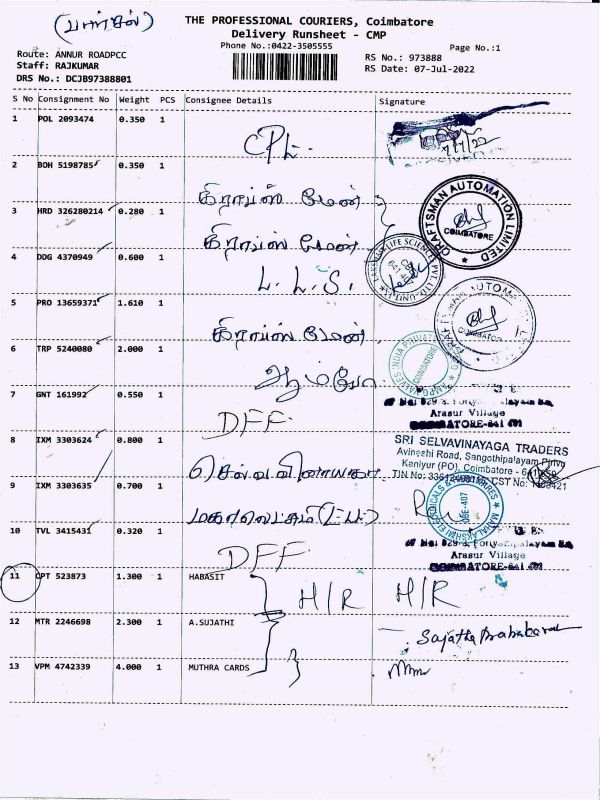 (பார்சல்)
THE PROFESSIONAL COURIERS, Coimbatore
Delivery Runsheet - CMP
Phone No.:0422-3505555
Page No.:1
Route: ANNUR ROADPCC
Staff: RAJKUMAR
DRS No.: DCJB97388801
RS No.: 973888
RS Date: 07-Jul-2022
S No Consignment No Weight PCS Consignee Details Signature
1 POL 2093474 0.350 1 CPL. 7/7/22
2 BOH 5198785 0.350 1 கிராப்ஸ் மேன்
CRAFTSMAN AUTOMATION LIMITED COIMBATORE
3 HRD 326280214 0.280 1 கிராப்ஸ் மேன்
4 DDG 4370949 0.600 1 L.L.S.
LIFE SCIENCE PVT. LTD.
5 PRO 13659371 1.610 1 கிராப்ஸ் மேன்
COIMBATORE
6 TRP 5240080 2.000 1 ஆம்போ
INDIA PRIVATE COIMBATORE
7 GNT 161992 0.550 1 DFF
Arasur Village
8 IXM 3303624 0.800 1 செல்வ விநாயகா
SRI SELVAVINAYAGA TRADERS
Avinashi Road, Sangothipalayam Pirivu
Kaniyur (PO), Coimbatore -
9 IXM 3303635 0.700 1 மகாலெட்சுமி
10 TVL 3415431 0.320 1 DFF
Arasur Village
11 CPT 523873 1.300 1 HABASIT H/R H/R
12 MTR 2246698 2.300 1 A.SUJATHI Sujatha Prabakaran
13 VPM 4742339 4.000 1 MUTHRA CARDS